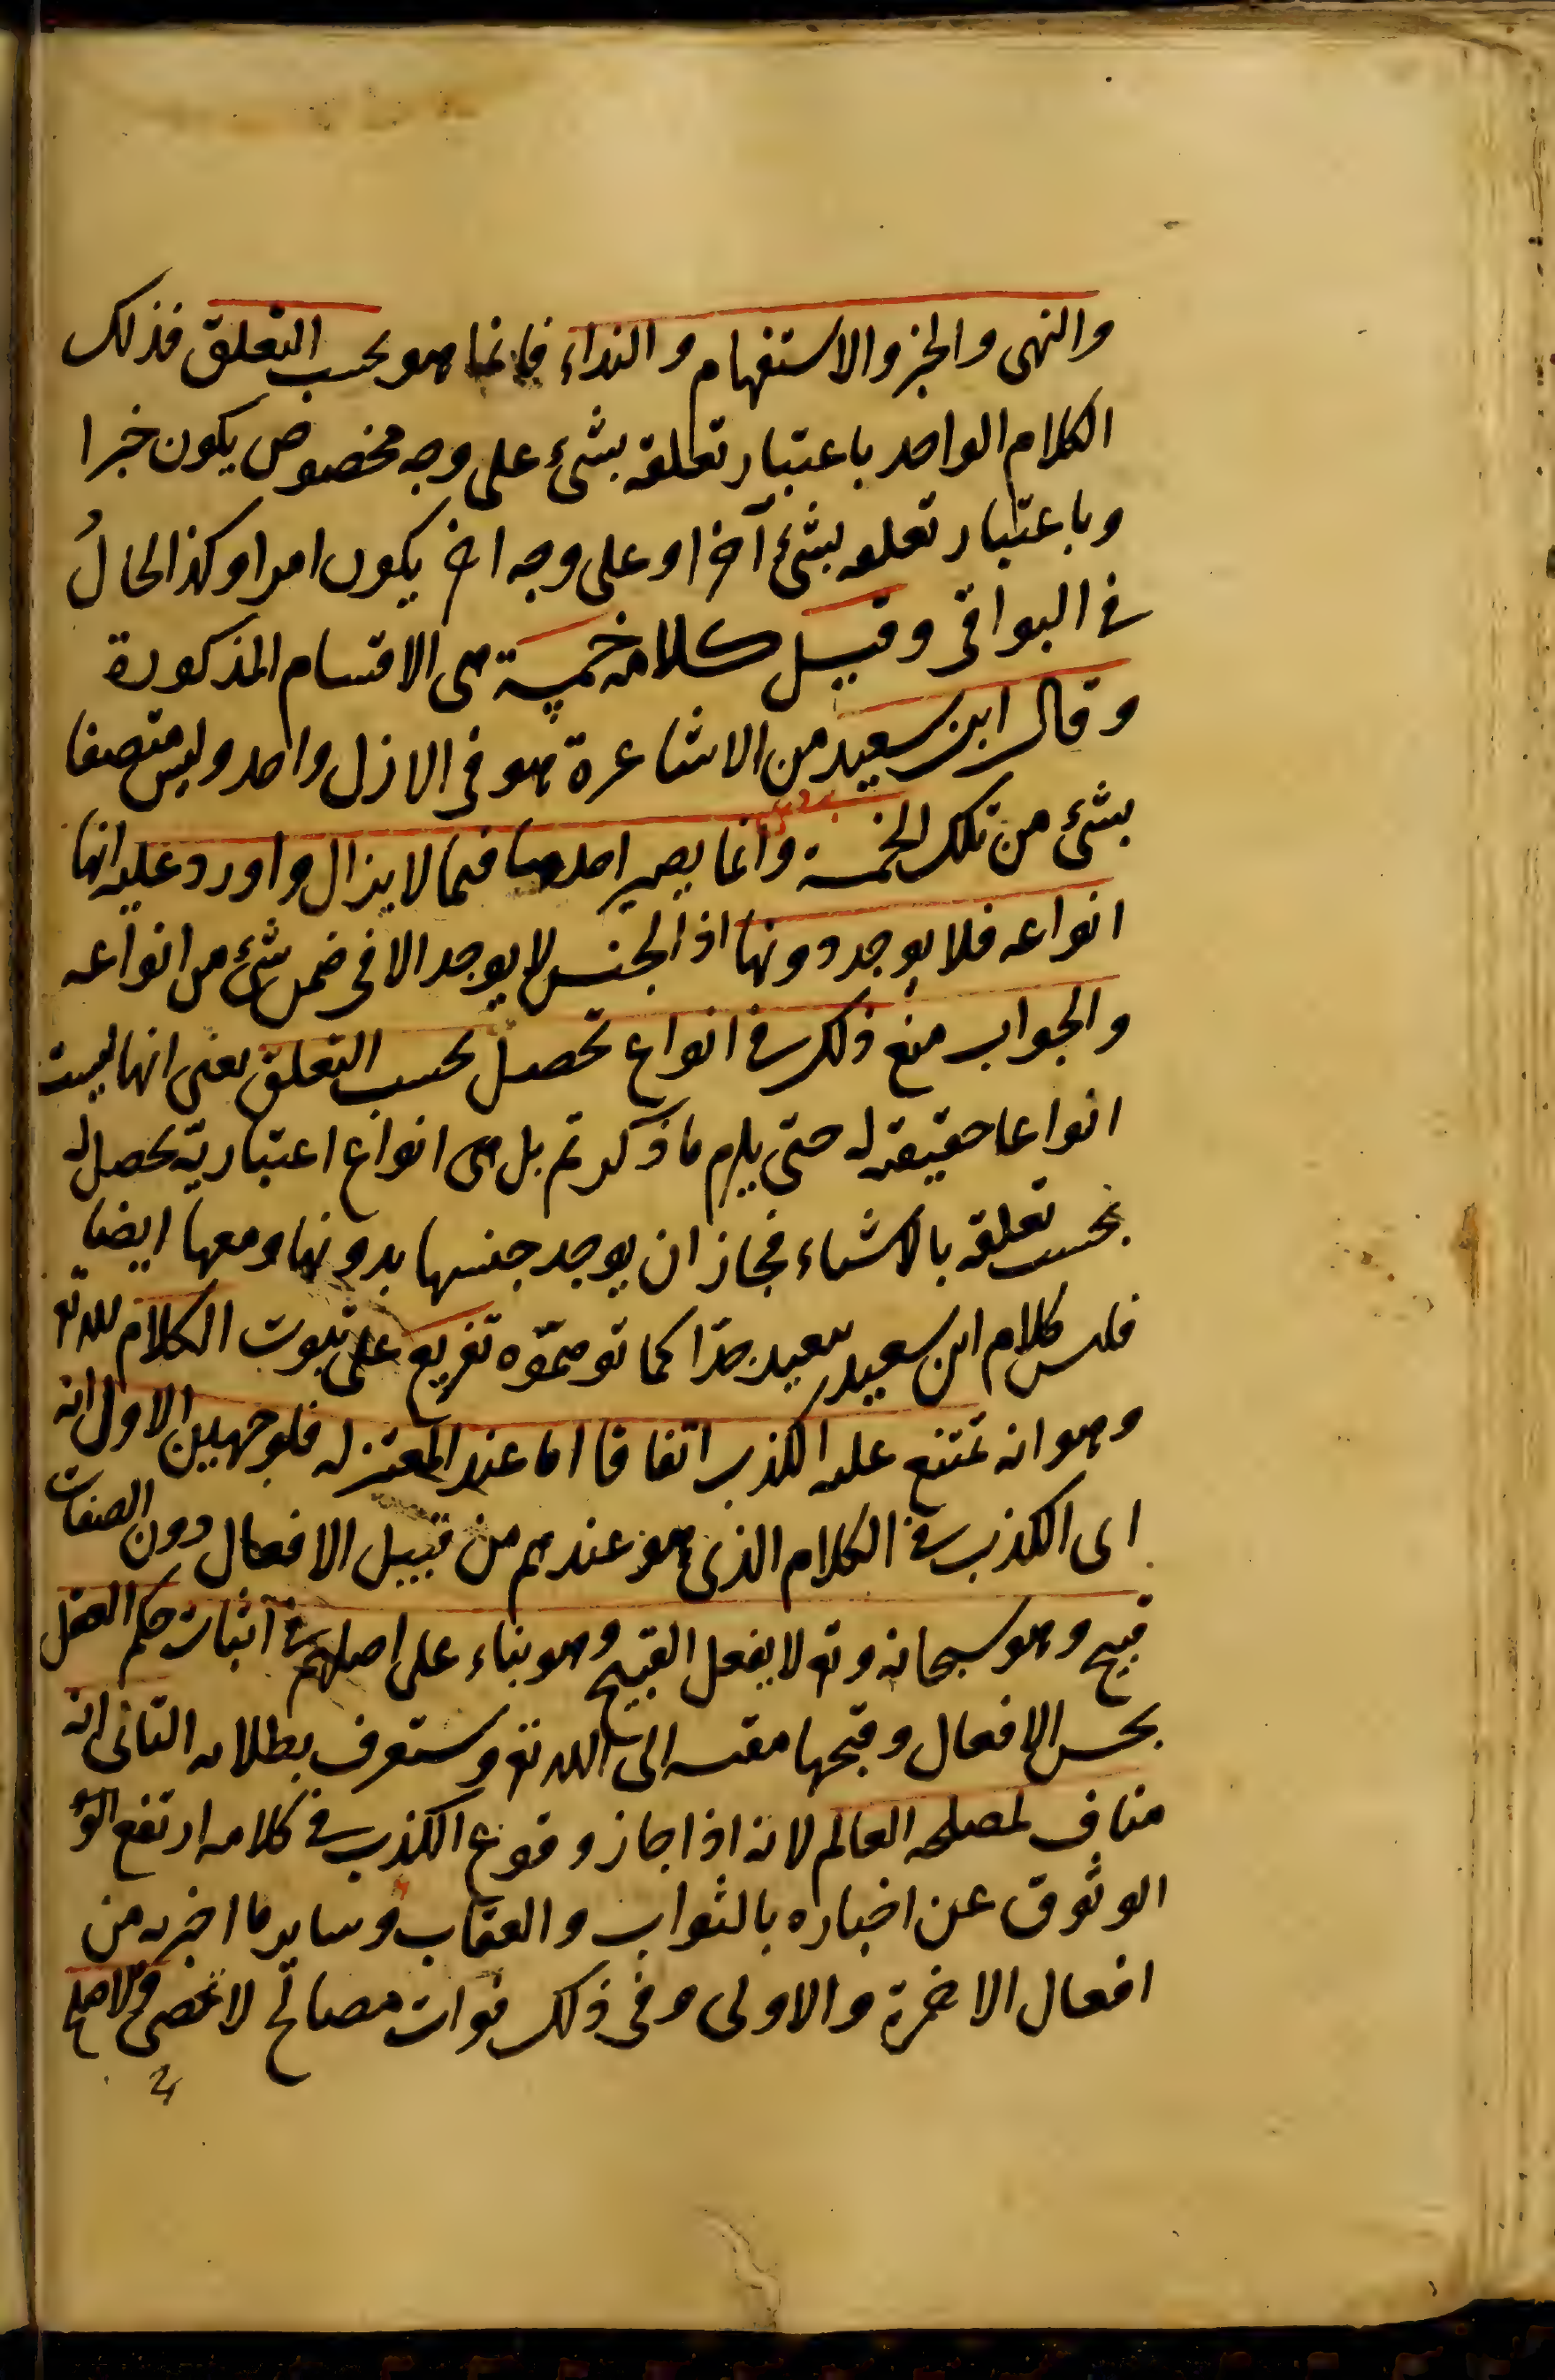 والنهى والخبر والاستفهام والنداء فانما هو بحسب التعلق فذلك
الكلام الواحد باعتبار تعلقه بشئ على وجه مخصوص يكون خبرا
وباعتبار تعلقه بشئ آخر او على وجه اخر يكون امرا وكذا الحالُ
فى البواقى وقيل كلامه خمسة هى الاقسام المذكورة
وقال ابن سعيد من الاشاعرة هو فى الازل واحد وليس متصفا
بشئ من تلك الخمسة وانما يصير احدها فيما لا يزال واورد عليه انها
انواعه فلا يوجد دونها اذ الجنس لا يوجد الا فى ضمن شئ من انواعه
والجواب منع ذلك فى انواع تحصل بحسب التعلق يعنى انها ليست
انواعا حقيقة له حتى يلزم ما ذكرتم بل هى انواع اعتبارية تحصل له
بحسب تعلقه بالاشياء فجاز ان يوجد جنسها بدونها ومعها ايضا
فليس كلام ابن سعيد ببعيد جدا كما توهموه تفريع على ثبوت الكلام لله تع
وهو انه يمتنع عليه الكذب اتفاقا اما عند المعتزله فلوجهين الاول انه
اى الكذب فى الكلام الذى هو عندهم من قبيل الافعال دون الصفات
قبيح وهو سبحانه وتع لا يفعل القبيح وهو بناء على اصلهم فى اثبات حكم العقل
بحسن الافعال وقبحها مقيسه الى الله تع وستعرف بطلانه الثانى انه
مناف لمصلحه العالم لانه اذا جاز وقوع الكذب فى كلامه ارتفع الو
الوثوق عن اخباره بالثواب والعقاب وساير ما اخبر به من
افعال الاخرة والاولى وفى ذلك فوات مصالح لا تحصى والاصلح